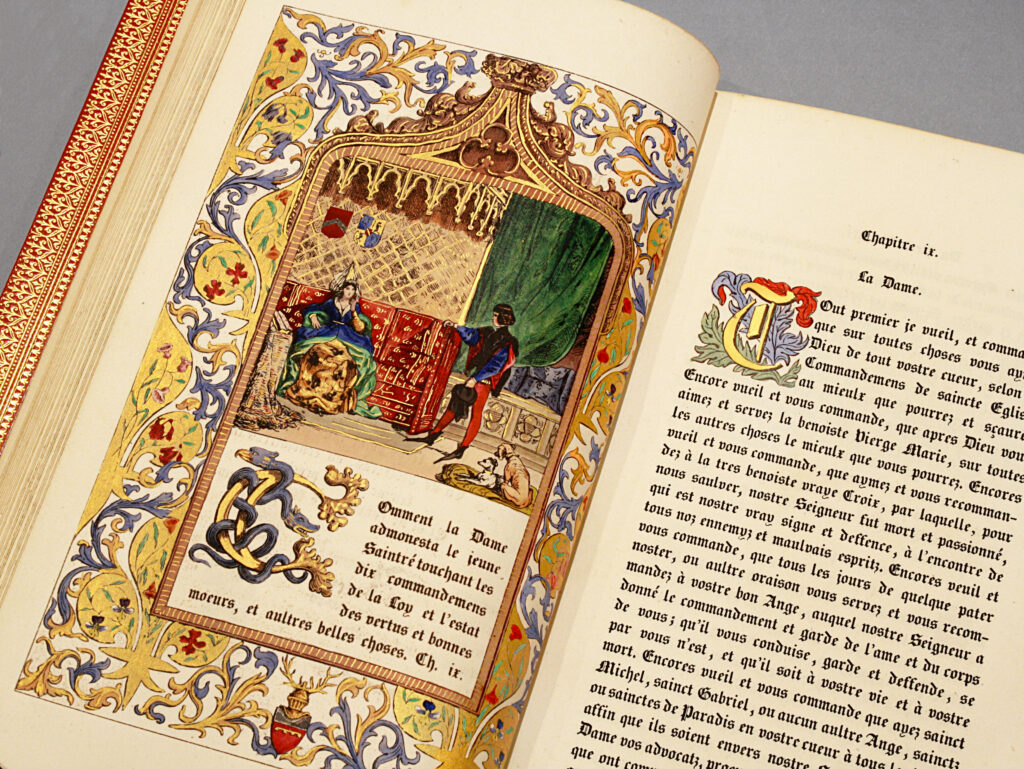 Comment la Dame
admonesta le jeune
Saintré touchant les
dix commandemens
de la Loy et l'estat
des vertus et bonnes
moeurs, et aultres belles choses. Ch. ix.
Chapitre ix.
La Dame.
Tout premier je vueil, et comma
que sur toutes choses vous ay
Dieu de tout vostre cueur, selon
Commandemens de saincte Eglis
au mieulx que pourrez et sçaure
Encore vueil et vous commande, que apres Dieu vou
aimez et servez la benoiste Vierge Marie, sur toutes
les autres choses le mieulx que vous pourrez. Encores
vueil et vous commande, que aymez et vous recomman-
dez à la tres benoiste vraye Croix, par laquelle, pour
nous saulver, nostre Seigneur fut mort et passionné,
qui est nostre vray signe et deffence, à l'encontre de
tous noz ennemyz et maulvais espritz. Encores veuil et
vous commande, que tous les jours de quelque pater
noster, ou aultre oraison vous servez et vous recom-
mandez à vostre bon Ange, auquel nostre Seigneur a
donné le commandement et garde de l'ame et du corps
de vous; qu'il vous conduise, garde et deffende, se
par vous n'est, et qu'il soit à vostre vie et à vostre
mort. Encores vueil et vous commande que ayez sainct
Michel, sainct Gabriel, ou aucun aultre Ange, sainctz
ou sainctes de Paradis en vostre cueur à tous
affin que ils soient envers nostre
Dame vos advocatz,
que ont